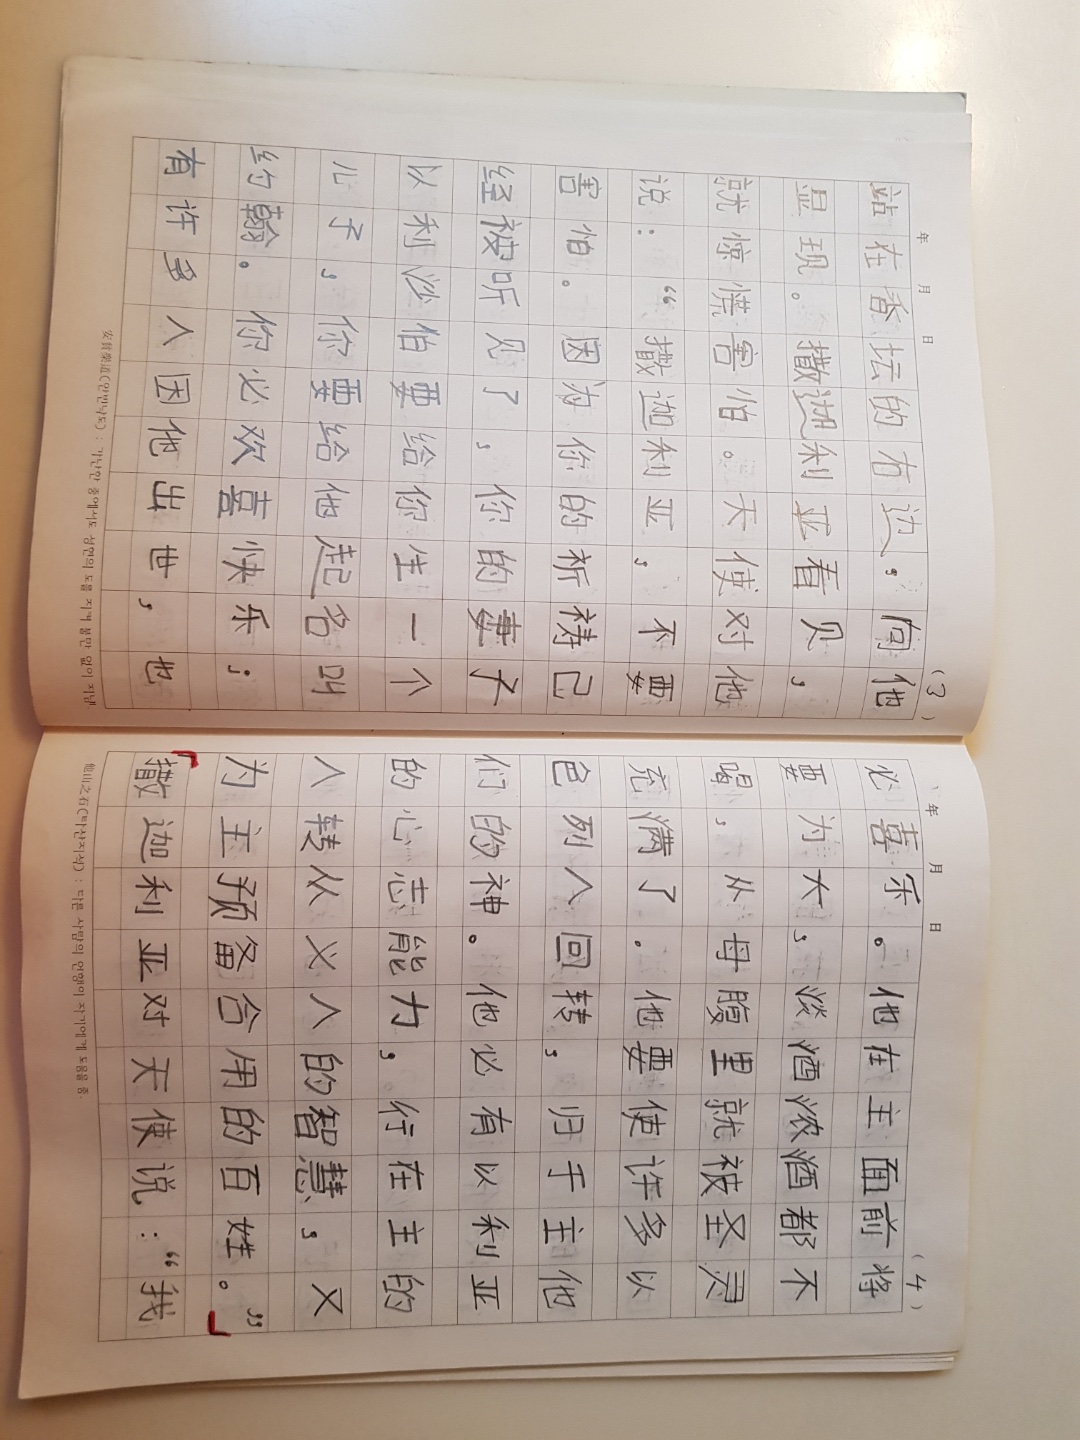 年 月 日 (3)
站在香坛的右边，向他
显现。撒迦利亚看见，
就惊慌害怕。天使对他
说：“撒迦利亚，不要
害怕。因为你的祈祷已
经被听见了，你的妻子
以利沙伯要给你生一个
儿子，你要给他起名叫
约翰。你必欢喜快乐；
有许多人因他出世，也
安貧樂道(안빈낙도) : 가난한 중에서도 성현의 도를 지켜 불만 없이 지냄.
年 月 日 (4)
必喜乐。他在主面前将
要为大，淡酒浓酒都不
喝，从母腹里就被圣灵
充满了。他要使许多以
色列人回转，归于主他
们的神。他必有以利亚
的心志能力，行在主的
人转从义人的智慧，又
为主预备合用的百姓。”」
「撒迦利亚对天使说：“我
他山之石(타산지석) : 다른 사람의 언행이 자기에게 도움을 줌.